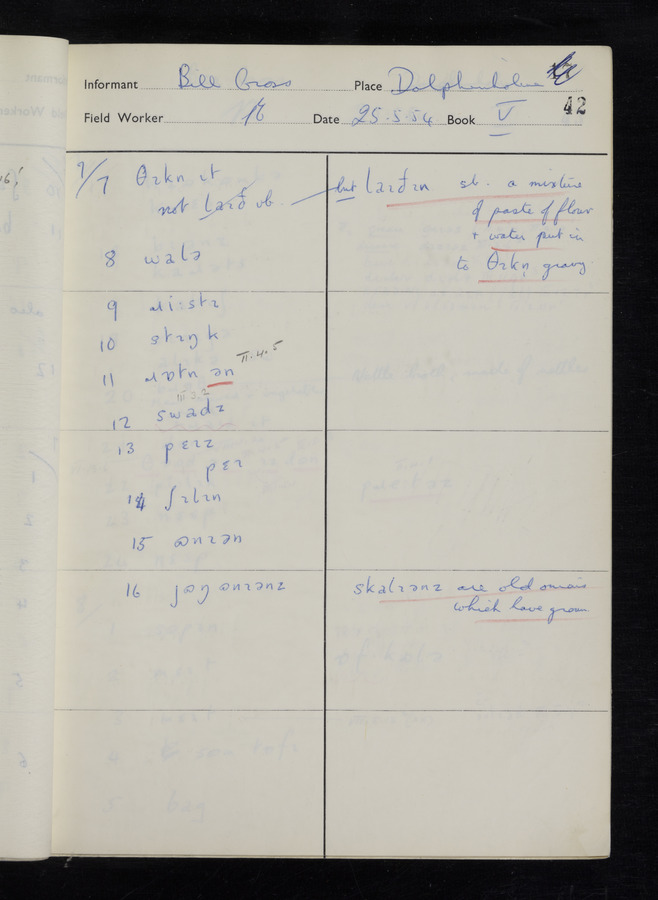 Informant Bill Cross Place Dolphinholme
42
Field Worker Date 25.5.54 Book V
7/7 θɪkn ɪt
but laɪðɪn sb. a mixture
not laɪð vb.
of paste of flour
+ water put in
8 walə
to θɪkn̩ gravy
9 ɹi:stɪ
10 stɪŋk
II.4.5
11 ɹɒtn ən
III.3.2
12 swadz
13 pɛɪz
pɛɪ
14 ʃɪlɪn
15 ɒnɪən
16 jɒŋ ɒnɪənz
skalɪənz are old onions
which have grown